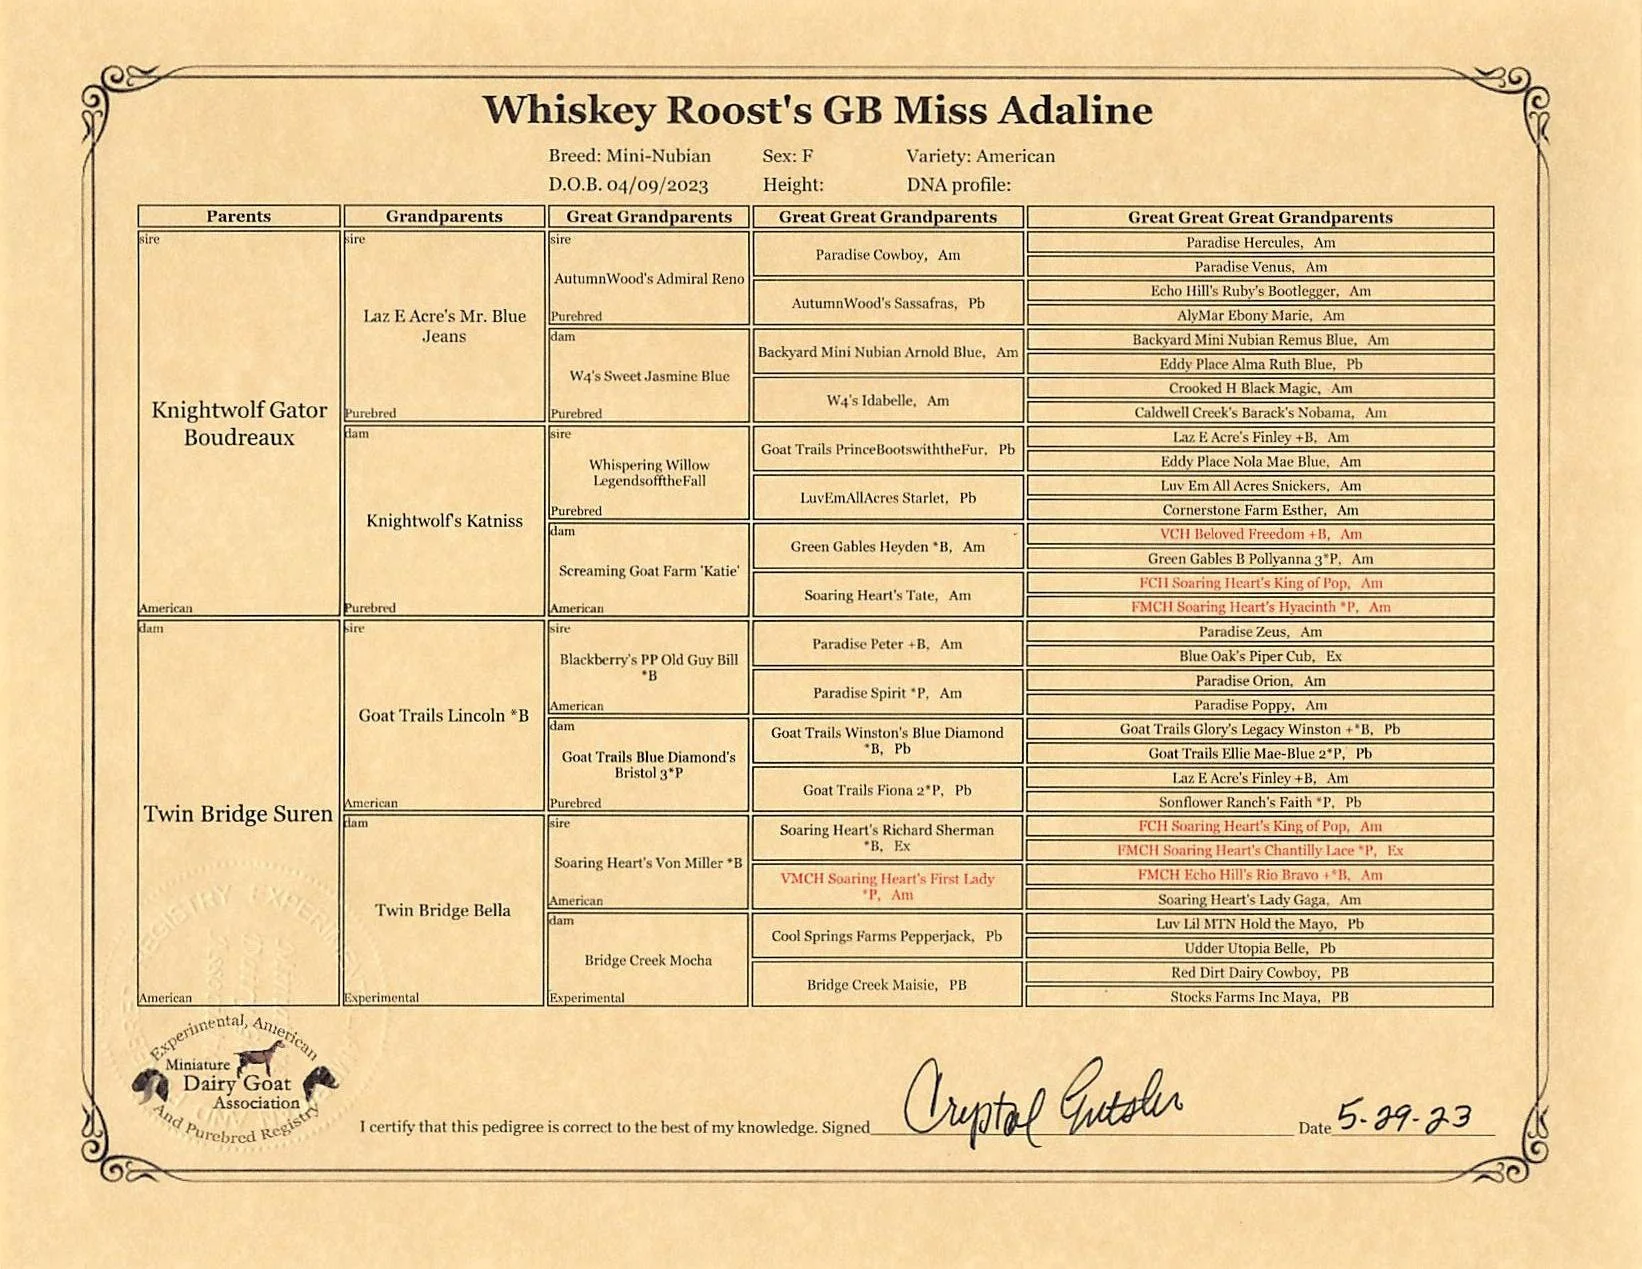 Whiskey Roost's GB Miss Adaline
Breed: Mini-Nubian Sex: F Variety: American
D.O.B. 04/09/2023 Height: DNA profile:
Parents Grandparents Great Grandparents Great Great Grandparents Great Great Great Grandparents
sire
Knightwolf Gator
Boudreaux
American
sire
Laz E Acre's Mr. Blue
Jeans
Purebred
sire
AutumnWood's Admiral Reno
Purebred
Paradise Cowboy, Am
Paradise Hercules, Am
Paradise Venus, Am
AutumnWood's Sassafras, Pb
Echo Hill's Ruby's Bootlegger, Am
AlyMar Ebony Marie, Am
dam
W4's Sweet Jasmine Blue
Purebred
Backyard Mini Nubian Arnold Blue, Am
Backyard Mini Nubian Remus Blue, Am
Eddy Place Alma Ruth Blue, Pb
W4's Idabelle, Am
Crooked H Black Magic, Am
Caldwell Creek's Barack's Nobama, Am
dam
Knightwolf's Katniss
Purebred
sire
Whispering Willow
LegendsofftheFall
Purebred
Goat Trails PrinceBootswiththeFur, Pb
Laz E Acre's Finley +B, Am
Eddy Place Nola Mae Blue, Am
LuvEmAllAcres Starlet, Pb
Luv Em All Acres Snickers, Am
Cornerstone Farm Esther, Am
dam
Screaming Goat Farm 'Katie'
American
Green Gables Heyden *B, Am
VCH Beloved Freedom +B, Am
Green Gables B Pollyanna 3*P, Am
Soaring Heart's Tate, Am
FCH Soaring Heart's King of Pop, Am
FMCH Soaring Heart's Hyacinth *P, Am
dam
Twin Bridge Suren
American
sire
Goat Trails Lincoln *B
American
sire
Blackberry's PP Old Guy Bill
*B
American
Paradise Peter +B, Am
Paradise Zeus, Am
Blue Oak's Piper Cub, Ex
Paradise Spirit *P, Am
Paradise Orion, Am
Paradise Poppy, Am
dam
Goat Trails Blue Diamond's
Bristol 3*P
Purebred
Goat Trails Winston's Blue Diamond
*B, Pb
Goat Trails Glory's Legacy Winston +*B, Pb
Goat Trails Ellie Mae-Blue 2*P, Pb
Goat Trails Fiona 2*P, Pb
Laz E Acre's Finley +B, Am
Sonflower Ranch's Faith *P, Pb
dam
Twin Bridge Bella
Experimental
sire
Soaring Heart's Von Miller *B
American
Soaring Heart's Richard Sherman
*B, Ex
FCH Soaring Heart's King of Pop, Am
FMCH Soaring Heart's Chantilly Lace *P, Ex
VMCH Soaring Heart's First Lady
*P, Am
FMCH Echo Hill's Rio Bravo +*B, Am
Soaring Heart's Lady Gaga, Am
dam
Bridge Creek Mocha
Experimental
Cool Springs Farms Pepperjack, Pb
Luv Lil MTN Hold the Mayo, Pb
Udder Utopia Belle, Pb
Bridge Creek Maisie, PB
Red Dirt Dairy Cowboy, PB
Stocks Farms Inc Maya, PB
Experimental, American
Miniature
Dairy Goat
Association
And Purebred Registry
I certify that this pedigree is correct to the best of my knowledge. Signed Crystal Gutsler Date 5-29-23